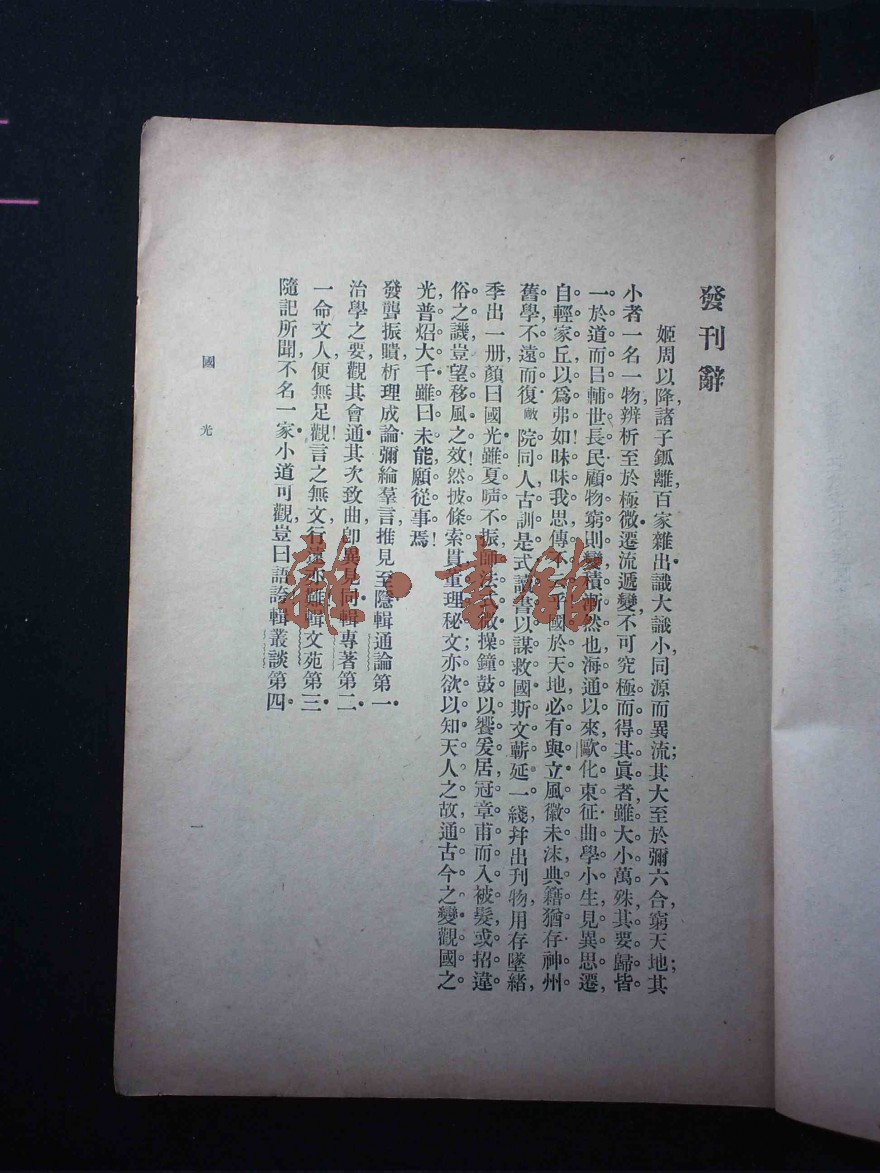 發刊辭
姬周以降,諸子鈲離,百家雜出,識大識小,同源而異流;其大至於彌六合,窮天地;其
小者一名一物,辨析至於極微,遷流遞變,不可究極,而得其眞者,雖大小萬殊,其要歸皆
一於道而㠯輔世長民。顧物窮則變,積漸然也。海通以來,歐化東征,曲學小生,見異思遷,
自輕家丘,以爲弗如。昧昧我思,傳不云乎!國於天地,必有與立。風徽未沫,典籍猶存,神州
舊學,不遠而復。敝院同人,古訓是式,讀書以謀救國,斯文蘄延一綫,幷出刊物,用存墜緒,
季出一册,顏曰國光。雖夏聲不振,師法式微,操鐘鼓以饗爰居,冠章甫而入被髮,或招違
俗之譏,豈望移風之效!然披條索貫,董理秘文,亦欲以知天人之故,通古今之變,觀國之
光,普炤大千,雖曰未能,願從事焉!
發聾振聵,析理成論,彌綸羣言,推見至隱,輯通論第一。
治學之要,觀其會通,其次致曲,卽異見同,輯專著第二。
一命文人,便無足觀!言之無文,行遠亦難,輯文苑第三。
隨記所聞,不名一家,小道可觀,豈曰語誇,輯叢談第四。
國光
一
龍·書館